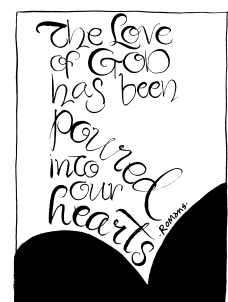 The Love
of God
has been
poured
into
our
hearts
.Romans.